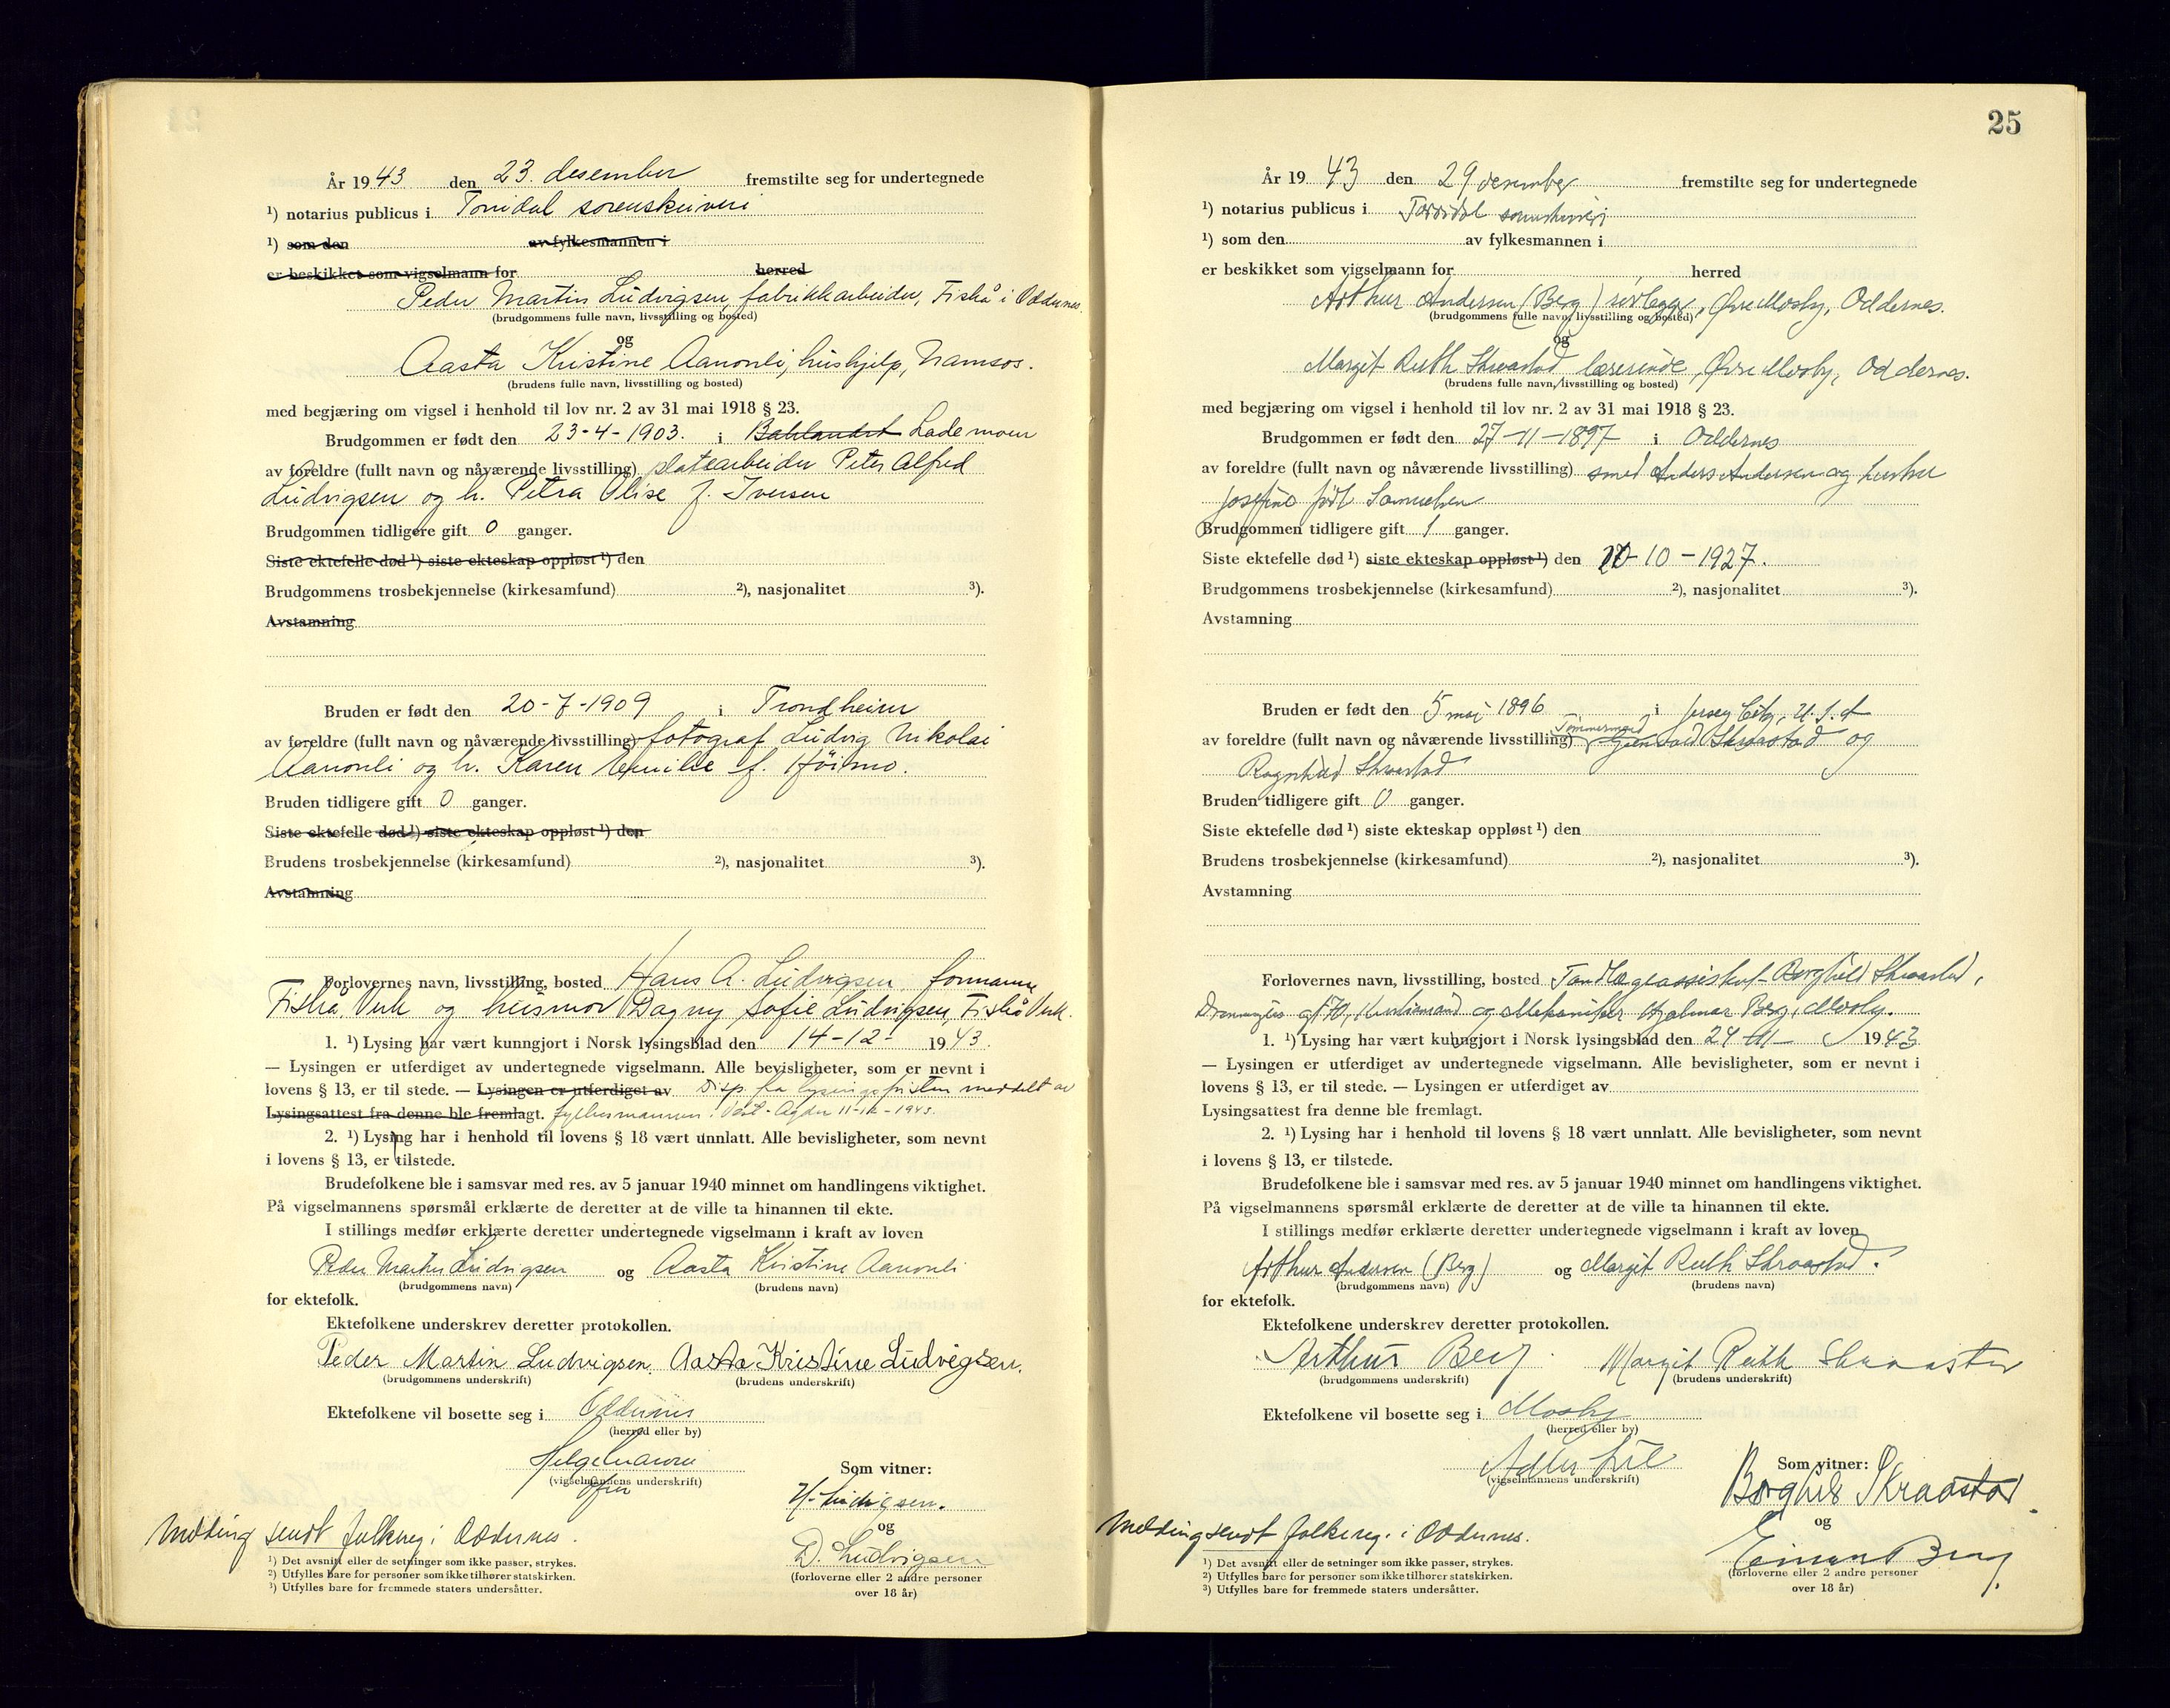 År 1943 den 23. desember fremstilte seg for undertegnede
¹) notarius publicus i Torridal sorenskriveri
¹) som den av fylkesmannen i
er beskikket som vigselmann for herred
Peder Martin Ludvigsen, fabrikkarbeider, Fiskå i Oddernes
(brudgommens fulle navn, livsstilling og bosted)
og
Aasta Kristine Aanonli, hushjelp, Namsos.
(brudens fulle navn, livsstilling og bosted)
med begjæring om vigsel i henhold til lov nr. 2 av 31 mai 1918 § 23.
Brudgommen er født den 23-4-1903. i Lademoen
av foreldre (fullt navn og nåværende livsstilling) platearbeider Peter Alfred
Ludvigsen og h. Petra Olise f. Iversen
Brudgommen tidligere gift 0 ganger.
Siste ektefelle død ¹) siste ekteskap oppløst ¹) den
Brudgommens trosbekjennelse (kirkesamfund) ²), nasjonalitet ³).
Avstamning
Bruden er født den 20-7-1909 i Trondheim
av foreldre (fullt navn og nåværende livsstilling) fotograf Ludvig Nikolai
Aanonli og h. Karen f. Höimo.
Bruden tidligere gift 0 ganger.
Siste ektefelle død ¹) siste ekteskap oppløst ¹) den
Brudens trosbekjennelse (kirkesamfund) ²), nasjonalitet ³).
Avstamning
Forlovernes navn, livsstilling, bosted Hans A. Ludvigsen, formann
Fiskå Verk og husmor Dagny Sofie Ludvigsen, Fiskå Verk.
1. ¹) Lysing har vært kunngjort i Norsk lysingsblad den 14-12- 1943.
— Lysingen er utferdiget av undertegnede vigselmann. Alle bevisligheter, som er nevnt i
lovens § 13, er til stede. — Lysingen er utferdiget av Disp. fra lysingsfristen meddelt av
Lysingsattest fra denne ble fremlagt. fylkesmannen i Vest-Agder 11-12-1943.
2. ¹) Lysing har i henhold til lovens § 18 vært unnlatt. Alle bevisligheter, som nevnt
i lovens § 13, er tilstede.
Brudefolkene ble i samsvar med res. av 5 januar 1940 minnet om handlingens viktighet.
På vigselmannens spørsmål erklærte de deretter at de ville ta hinannen til ekte.
I stillings medfør erklærte deretter undertegnede vigselmann i kraft av loven
Peder Martin Ludvigsen og Aasta Kristine Aanonli
(brudgommens navn) (brudens navn)
for ektefolk.
Ektefolkene underskrev deretter protokollen.
Peder Martin Ludvigsen. Aasta Kristine Ludvigsen.
(brudgommens underskrift) (brudens underskrift)
Ektefolkene vil bosette seg i Oddernes
(herred eller by)
(vigselmannens underskrift)
Som vitner:
H. Ludvigsen.
og
D. Ludvigsen
(forloverne eller 2 andre personer
over 18 år)
Melding sendt folkereg. i Oddernes.
¹) Det avsnitt eller de setninger som ikke passer, strykes.
²) Utfylles bare for personer som ikke tilhører statskirken.
³) Utfylles bare for fremmede staters undersåtter.
25
År 1943 den 29 desember fremstilte seg for undertegnede
¹) notarius publicus i Torridal sorenskriveri
¹) som den av fylkesmannen i
er beskikket som vigselmann for herred
Arthur Andersen (Berg) rørlegger, Øvre Mosby, Oddernes.
(brudgommens fulle navn, livsstilling og bosted)
og
Margit Ruth Skraastad lærerinde, Øvre Mosby, Oddernes.
(brudens fulle navn, livsstilling og bosted)
med begjæring om vigsel i henhold til lov nr. 2 av 31 mai 1918 § 23.
Brudgommen er født den 27-11-1897 i Oddernes
av foreldre (fullt navn og nåværende livsstilling) smed Anders Andersen og hustru
Josefine født Samuelsen
Brudgommen tidligere gift 1 ganger.
Siste ektefelle død ¹) siste ekteskap oppløst ¹) den 10-1927.
Brudgommens trosbekjennelse (kirkesamfund) ²), nasjonalitet ³).
Avstamning
Bruden er født den 5 mai 1896 i Jersey City, U.S.A
av foreldre (fullt navn og nåværende livsstilling) Tømmermand Skraastad og
Ragnhild Skraastad
Bruden tidligere gift 0 ganger.
Siste ektefelle død ¹) siste ekteskap oppløst ¹) den
Brudens trosbekjennelse (kirkesamfund) ²), nasjonalitet ³).
Avstamning
Forlovernes navn, livsstilling, bosted Tandlægeassistent Borghild Skraastad,
Dronningens gt 70, Kristiansand og Mekaniker Hjalmar Berg, Mosby.
1. ¹) Lysing har vært kunngjort i Norsk lysingsblad den 24-11- 1943
— Lysingen er utferdiget av undertegnede vigselmann. Alle bevisligheter, som er nevnt i
lovens § 13, er til stede. — Lysingen er utferdiget av
Lysingsattest fra denne ble fremlagt.
2. ¹) Lysing har i henhold til lovens § 18 vært unnlatt. Alle bevisligheter, som nevnt
i lovens § 13, er tilstede.
Brudefolkene ble i samsvar med res. av 5 januar 1940 minnet om handlingens viktighet.
På vigselmannens spørsmål erklærte de deretter at de ville ta hinannen til ekte.
I stillings medfør erklærte deretter undertegnede vigselmann i kraft av loven
Arthur Andersen (Berg) og Margit Ruth Skraastad.
(brudgommens navn) (brudens navn)
for ektefolk.
Ektefolkene underskrev deretter protokollen.
Arthur Berg. Margit Ruth Skraastad
(brudgommens underskrift) (brudens underskrift)
Ektefolkene vil bosette seg i Mosby
(herred eller by)
(vigselmannens underskrift)
Som vitner:
Borghild Skraastad.
og
Einar Berg
(forloverne eller 2 andre personer
over 18 år)
Melding sendt folkereg. i Oddernes.
¹) Det avsnitt eller de setninger som ikke passer, strykes.
²) Utfylles bare for personer som ikke tilhører statskirken.
³) Utfylles bare for fremmede staters undersåtter.